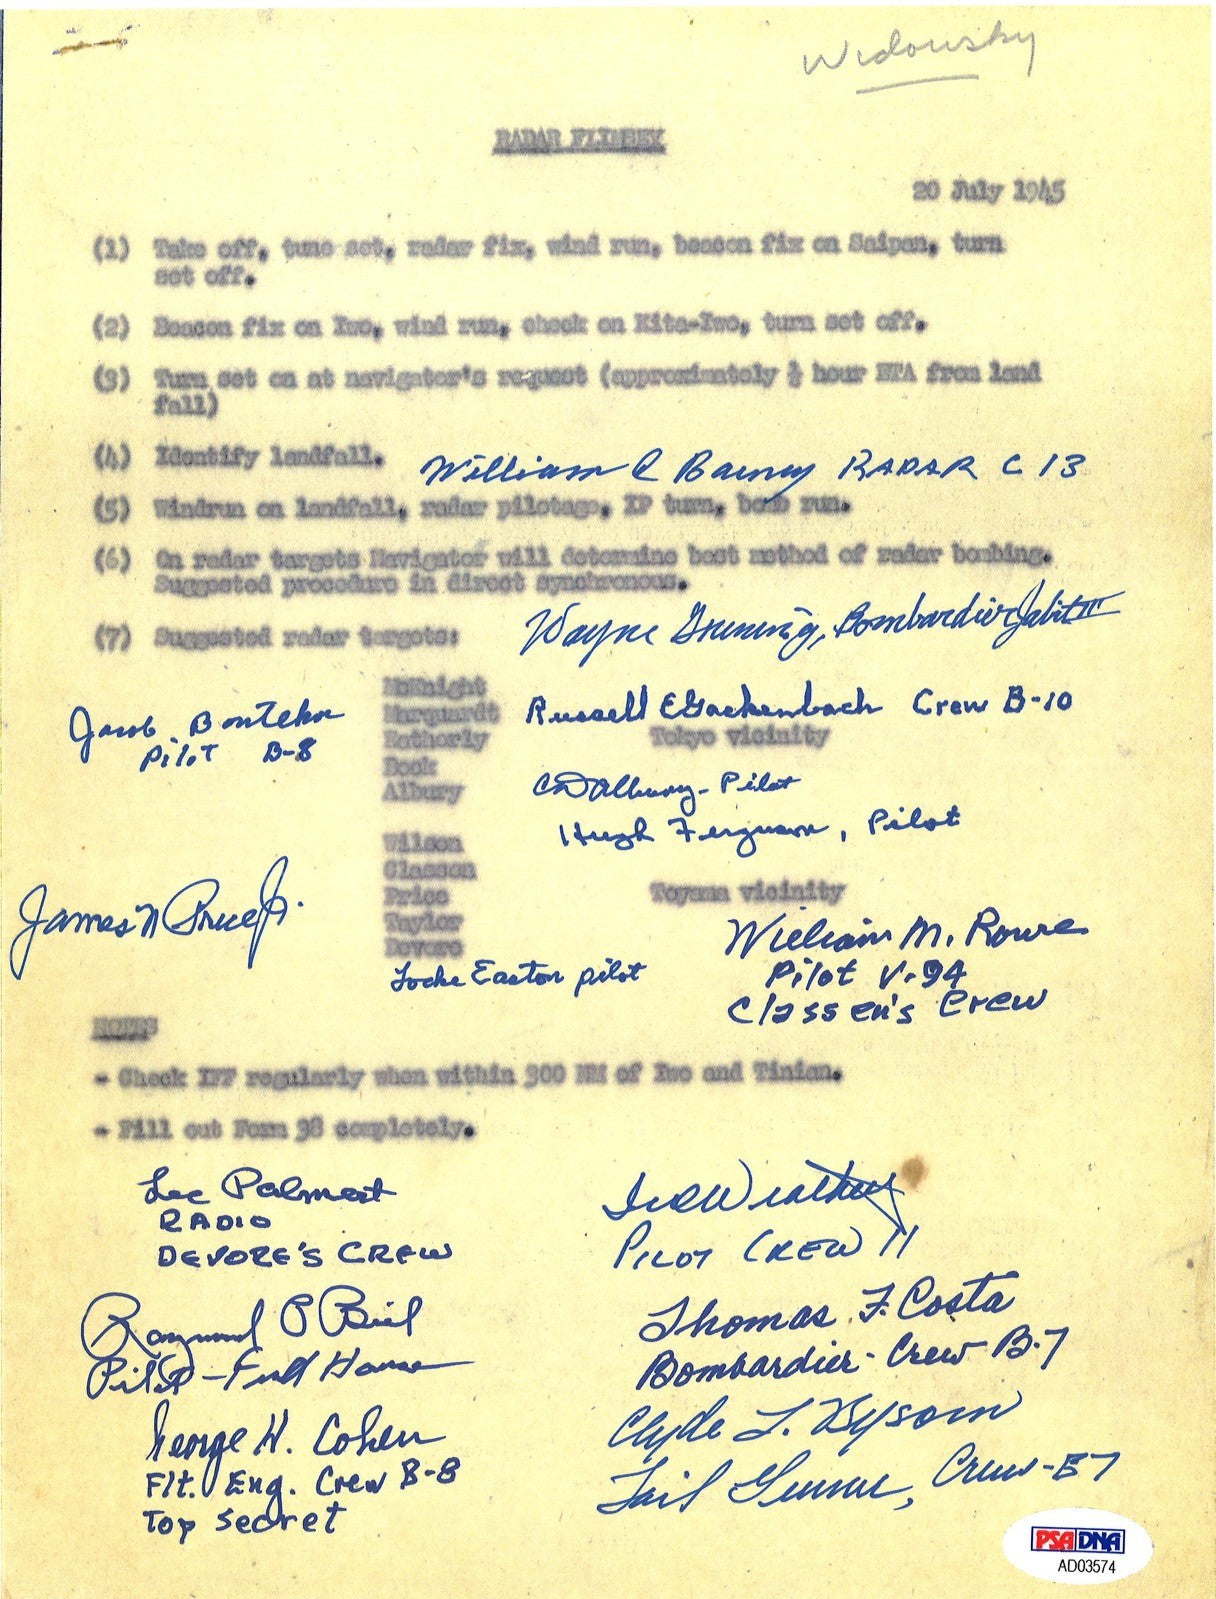 Widowsky
RADAR FLIMSEY
20 July 1945
(1) Take off, tune set, radar fix, wind run, beacon fix on Saipan, turn
set off.
(2) Beacon fix on Iwo, wind run, check on Kita-Iwo, turn set off.
(3) Turn set on at navigator's request (approximately ½ hour ETA from land
fall)
(4) Identify landfall.
William C Barney RADAR C 13
(5) Windrun on landfall, radar pilotage, IP turn, bomb run.
(6) On radar targets Navigator will determine best method of radar bombing.
Suggested procedure in direct synchronous.
(7) Suggested radar targets:
Wayne Gruning, Bombardier Jabit III
McKnight
Marquardt
Eatherly
Bock
Albury
Tokyo vicinity
Jacob Bontekoe
Pilot B-8
Russell E Gackenbach Crew B-10
CD Albury - Pilot
Hugh Ferguson, Pilot
Wilson
Classen
Price
Taylor
Devore
Toyama vicinity
James N Price Jr.
Locke Easton pilot
William M. Rowe
Pilot V-94
Classen's Crew
NOTES
- Check IFF regularly when within 300 NM of Iwo and Tinian.
- Fill out Form 98 completely.
Lee Palmert
RADIO
DEVORE'S CREW
Raymond P Biel
Pilot - Full House
George H. Cohen
Flt. Eng. Crew B-8
Top Secret
Ira Weatherly
PILOT CREW 11
Thomas F. Costa
Bombardier - Crew B-7
Clyde L. Bysom
Tail Gunner, Crew-B7
PSA DNA
AD03574